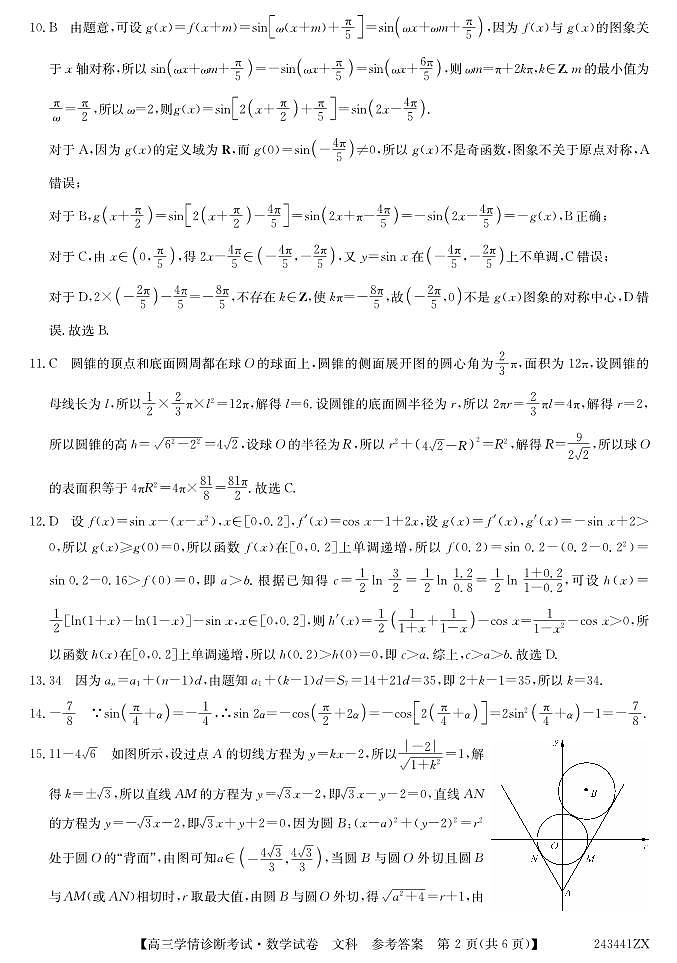 10. B 由题意,可设 g(x)=f(x+m)=sin[ω(x+m)+π/5]=sin(ωx+ωm+π/5),因为 f(x)与 g(x)的图象关
于 x 轴对称,所以 sin(ωx+ωm+π/5)=-sin(ωx+π/5)=sin(ωx+6π/5),则 ωm=π+2kπ,k∈Z. m 的最小值为
π/ω=π/2,所以 ω=2,则g(x)=sin[2(x+π/2)+π/5]=sin(2x-4π/5).
对于 A,因为 g(x)的定义域为 R,而 g(0)=sin(-4π/5)≠0,所以 g(x)不是奇函数,图象不关于原点对称,A
错误;
对于 B,g(x+π/2)=sin[2(x+π/2)-4π/5]=sin(2x+π-4π/5)=-sin(2x-4π/5)=-g(x),B 正确;
对于 C,由 x∈(0,π/5),得 2x-4π/5∈(-4π/5,-2π/5),又 y=sin x 在(-4π/5,-2π/5)上不单调,C 错误;
对于 D,2×(-2π/5)-4π/5=-8π/5,不存在 k∈Z,使 kπ=-8π/5,故(-2π/5,0)不是 g(x)图象的对称中心,D 错
误. 故选 B.
11. C 圆锥的顶点和底面圆周都在球 O 的球面上,圆锥的侧面展开图的圆心角为 2/3 π,面积为 12π,设圆锥的
母线长为 l,所以 1/2×2/3 π×l²=12π,解得 l=6. 设圆锥的底面圆半径为 r,所以 2πr=2/3 πl=4π,解得 r=2,
所以圆锥的高 h=√(6²-2²)=4√2,设球 O 的半径为 R,所以 r²+(4√2-R)²=R²,解得 R=9/(2√2),所以球 O
的表面积等于 4πR²=4π×81/8=81π/2. 故选 C.
12. D 设 f(x)=sin x-(x-x²),x∈[0,0.2],f′(x)=cos x-1+2x,设 g(x)=f′(x),g′(x)=-sin x+2>
0,所以 g(x)≥g(0)=0,所以函数 f(x)在[0,0.2]上单调递增,所以 f(0.2)=sin 0.2-(0.2-0.2²)=
sin 0.2-0.16>f(0)=0,即 a>b. 根据已知得 c=1/2 ln 3/2=1/2 ln 1.2/0.8=1/2 ln (1+0.2)/(1-0.2),可设 h(x)=
1/2[ln(1+x)-ln(1-x)]-sin x,x∈[0,0.2],则 h′(x)=1/2(1/(1+x)+1/(1-x))-cos x=1/(1-x²)-cos x>0,所
以函数 h(x)在[0,0.2]上单调递增,所以 h(0.2)>h(0)=0,即 c>a. 综上,c>a>b. 故选 D.
13. 34 因为 aₙ=a₁+(n-1)d,由题知 a₁+(k-1)d=S₇=14+21d=35,即 2+k-1=35,所以 k=34.
14. -7/8 ∵sin(π/4+α)=-1/4,∴sin 2α=-cos(π/2+2α)=-cos[2(π/4+α)]=2sin²(π/4+α)-1=-7/8.
15. 11-4√6 如图所示,设过点 A 的切线方程为 y=kx-2,所以 |-2|/√(1+k²)=1,解
得 k=±√3,所以直线 AM 的方程为 y=√3x-2,即√3x-y-2=0,直线 AN
的方程为 y=-√3x-2,即√3x+y+2=0,因为圆 B:(x-a)²+(y-2)²=r²
处于圆 O 的“背面”,由图可知a∈(-4√3/3,4√3/3),当圆 B 与圆 O 外切且圆 B
与 AM(或 AN)相切时,r 取最大值,由圆 B 与圆 O 外切,得 √(a²+4)=r+1,由
y
B
O
x
N
M
A
【高三学情诊断考试·数学试卷 文科 参考答案 第 2 页(共 6 页)】
243441ZX